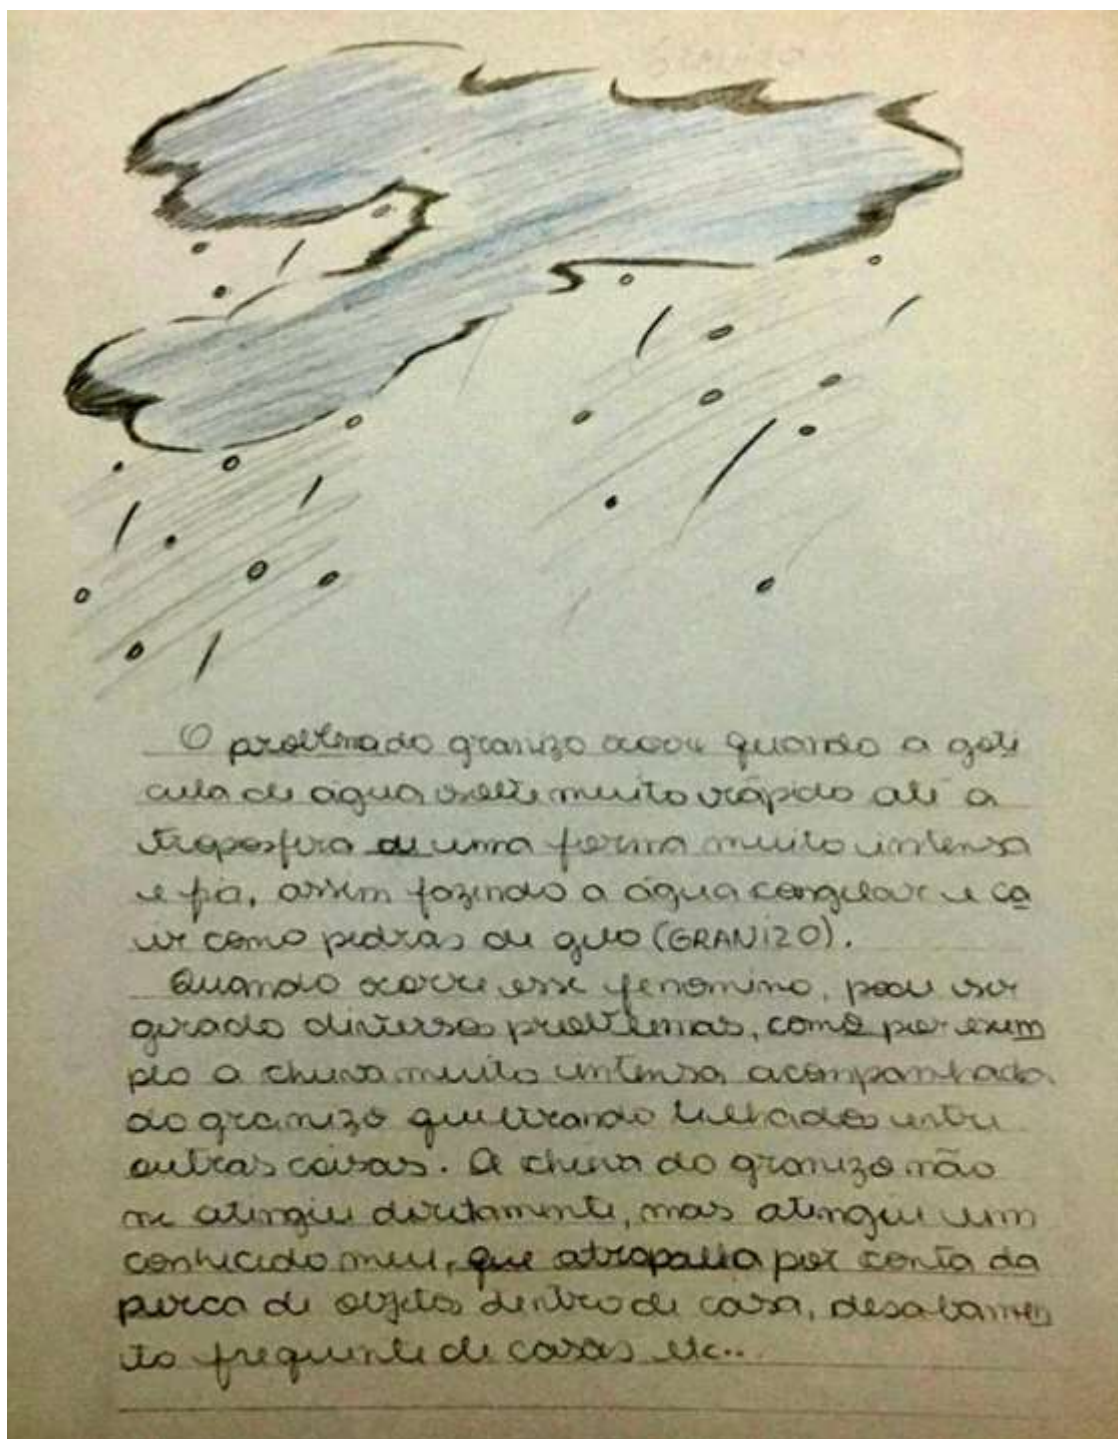 GRANIZO
O problema do granizo ocorre quando a gotí
cula de água solta muito rápido até a
troposfera de uma forma muito intensa
e fria, assim fazendo a água congelar e ca
ir como pedras de gelo (GRANIZO).
Quando ocorre esse fenomino, pode ser
gerado diversos problemas, como por exem
plo a chuva muito intensa acompanhada
do granizo quebrando telhados entre
outras coisas. A chuva do granizo não
me atingiu diretamente, mas atingiu um
conhecido meu, que atrapalha por conta da
perca de objetos dentro de casa, desabamen
to frequente de casas etc..